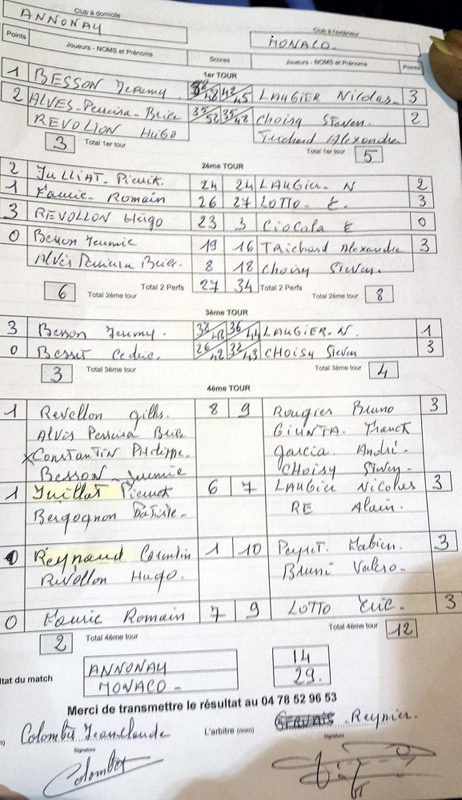 Club à domicile
ANNONAY
Club à l'extérieur
MONACO.
Points Joueurs - NOMS et Prénoms Scores Joueurs - NOMS et Prénoms Points
1er TOUR
1 BESSON Jeremy LAUGIER Nicolas 3
2 ALVES-Perreira-Brice CHOISY Steven. 2
REVOLLON HUGO Trichard Alexandre
3 Total 1er tour Total 1er tour 5
2ème TOUR
2 JULLIAT-Pierrick 24 24 LAUGIER-N 2
1 Faurie-Romain 26 27 LOTTO-E. 3
3 REVOLLON Hugo 23 3 CIOCOLA E 0
0 Besson Jeremie 19 16 TRICHARD Alexandre 3
Alvès Perreira Brice. 8 18 CHOISY Steven.
6 Total 2ème tour Total 2 Perfs 27 34 Total 2 Perfs Total 2ème tour 8
3ème TOUR
3 Besson Jeremy. LAUGIER-N. 1
0 Besset Cedric. CHOISY Steven 3
3 Total 3ème tour Total 3ème tour 4
4ème TOUR
1 Revollon gilles. 8 9 Rougier Bruno 3
Alvès Perreira Brice GIUNTA. Franck
x CONSTANTIN Philippe. garcia André.
Besson Jeremie CHOISY Steven-
1 Juillat Pierrick 6 7 LAUGIER Nicolas 3
Bergognon Batiste. RE Alain.
0 Reynaud Corentin 1 10 Peyret. Fabien. 3
REVOLLON HUGO. Bruni Valero.
0 Faurie Romain 7 9 LOTTO Eric. 3
2 Total 4ème tour Total 4ème tour 12
ltat du match ANNONAY 14
MONACO- 29.
Merci de transmettre le résultat au 04 78 52 96 53
Colombet Jeanclaude L'arbitre (nom) Reynier.
Signature Signature
Colombet